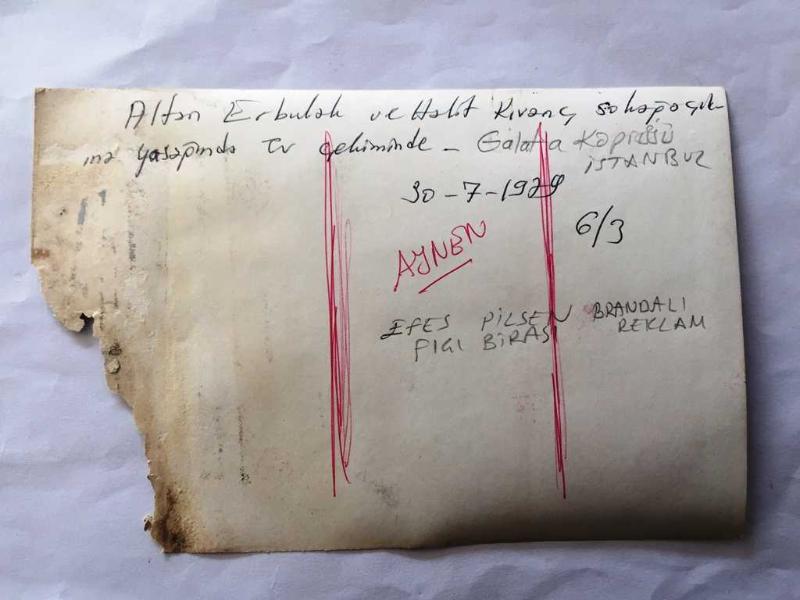 Altan Erbulak ve Halit Kıvanç
yasağında TV çekiminde - Galata Köprüsü
İSTANBUL
30-7-1979
6/3
AYNEN
EFES PİLSEN BRANDALI
FIÇI BİRASI REKLAM